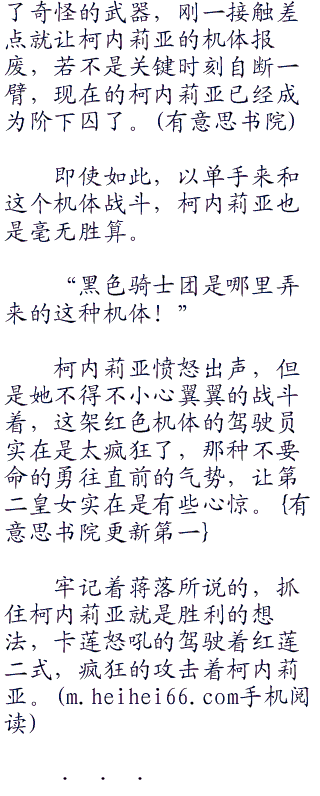 了奇怪的武器，刚一接触差
点就让柯内莉亚的机体报
废，若不是关键时刻自断一
臂，现在的柯内莉亚已经成
为阶下囚了。(有意思书院)
即使如此，以单手来和
这个机体战斗，柯内莉亚也
是毫无胜算。
“黑色骑士团是哪里弄
来的这种机体！”
柯内莉亚愤怒出声，但
是她不得不小心翼翼的战斗
着，这架红色机体的驾驶员
实在是太疯狂了，那种不要
命的勇往直前的气势，让第
二皇女实在是有些心惊。{有
意思书院更新第一}
牢记着蒋落所说的，抓
住柯内莉亚就是胜利的想
法，卡莲怒吼的驾驶着红莲
二式，疯狂的攻击着柯内莉
亚。(m.heihei66.com手机阅
读)
．．．